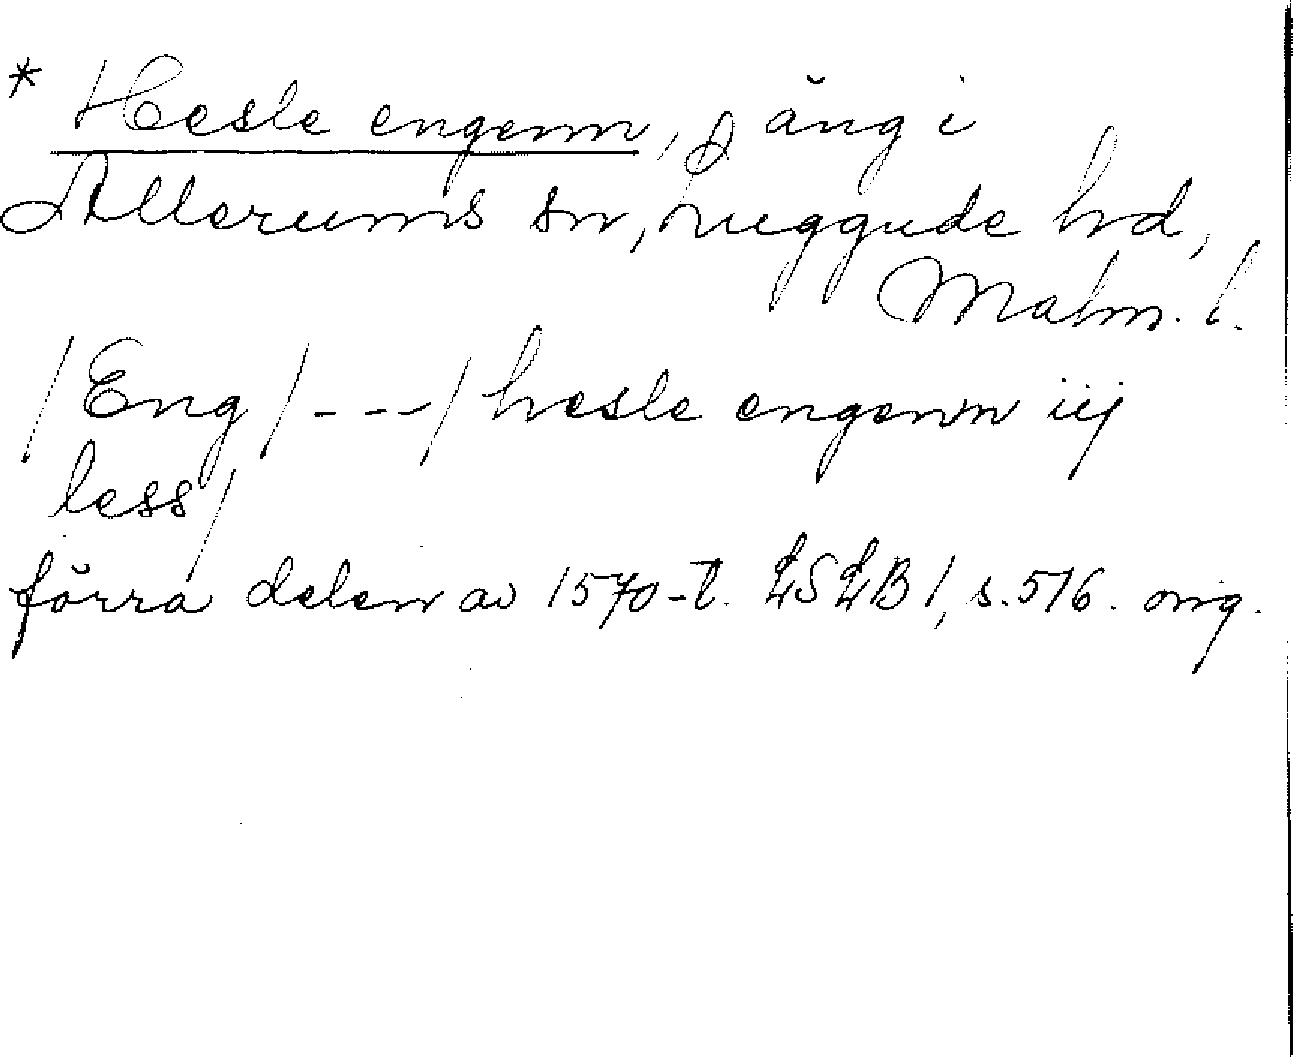 * Hesle engenn, äng i
Allerums sn, Luggude hd,
Malm. l.
/ Eng / --- / hesle engenn iij
less /
förra delen av 1570-t. LSLB 1, s. 516. orig.